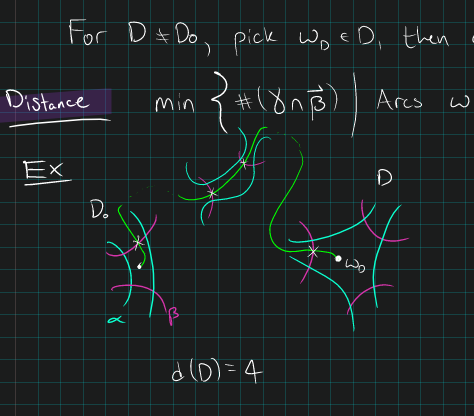 For D ≠ D₀, pick w_D ∈ D, then
Distance min { #(γ ∩ β⃗) | Arcs w
Ex
D
D₀
w_D
α β
d(D) = 4